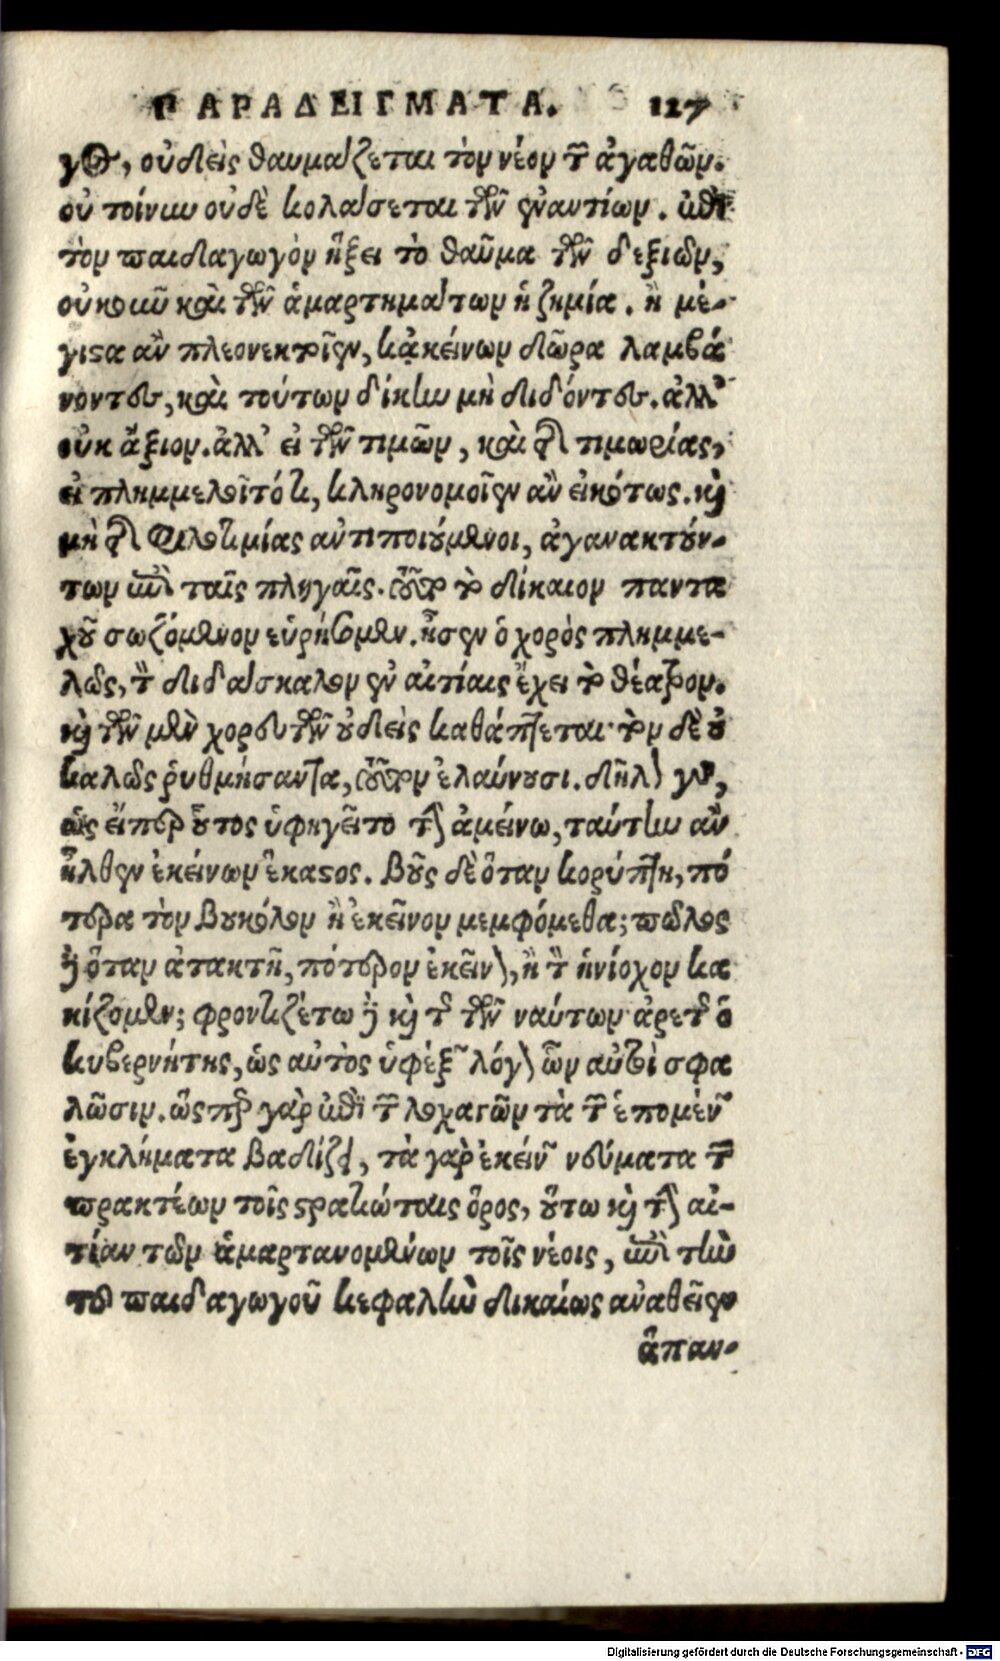 ΠΑΡΑΔΕΙΓΜΑΤΑ. 127
γος, οὐδεὶς θαυμάζεται τὸν νέον τῶν ἀγαθῶν.
οὐ τοίνυν οὐδὲ κολάσεται τῶν ἐναντίων. ἐπὶ
τὸν παιδαγωγὸν ἥξει τὸ θαῦμα τῶν δεξιῶν,
οὐκοῦν καὶ τῶν ἁμαρτημάτων ἡ ζημία. ἢ μέ-
γιϛα ἂν πλεονεκτοῖεν, κἀκείνων δῶρα λαμβά
νοντες, καὶ τούτων δίκην μὴ διδόντες. ἀλλ'
οὐκ ἄξιον. ἀλλ' εἰ τῶν τιμῶν, καὶ τῆς τιμωρίας,
εἰ πλημμελοῖτό τι, κληρονομοῖεν ἂν εἰκότως. καὶ
μὴ τῆς φιλοτιμίας ἀντιποιούμενοι, ἀγανακτούν-
των ἐπὶ ταῖς πληγαῖς. τοῦτο τὸ δίκαιον παντα
χοῦ σωζόμενον εὑρήσομεν. ᾖσεν ὁ χορὸς πλημμε-
λῶς, τὸν διδάσκαλον ἐν αἰτίαις ἔχει τὸ θέατρον.
καὶ τῶν μὲν χορευτῶν οὐδεὶς καθάπτεται· τὸν δὲ οὐ
καλῶς ῥυθμήσαντα, τοῦτον ἐλαύνουσι. δῆλον γὰρ,
ὡς εἴπερ οὗτος ὑφηγεῖτο τὴν ἀμείνω, ταύτην ἂν
ἦλθεν ἐκείνων ἕκαϛος. βοῦς δὲ ὅταν κορύπτῃ, πό
τερα τὸν βουκόλον ἢ ἐκεῖνον μεμφόμεθα; πῶλος
δὲ ὅταν ἀτακτῇ, πότερον ἐκεῖνον, ἢ τὸν ἡνίοχον κα
κίζομεν; φροντιζέτω δὲ καὶ τῆς τῶν ναύτων ἀρετῆς ὁ
κυβερνήτης, ὡς αὐτὸς ὑφέξων λόγον ὧν αὐτοὶ σφα
λῶσιν. ὥσπερ γὰρ ἐπὶ τῶν λοχαγῶν τὰ τῶν ἑπομένων
ἐγκλήματα βαδίζει, τὰ γὰρ ἐκείνων νεύματα τῶν
πρακτέων τοῖς ϛρατιώταις ὅρος, οὕτω καὶ τὴν αἰ-
τίαν τῶν ἁμαρτανομένων τοῖς νέοις, ἐπὶ τὴν
τοῦ παιδαγωγοῦ κεφαλὴν δικαίως ἀναθεῖεν
ἅπαν-
Digitalisierung gefördert durch die Deutsche Forschungsgemeinschaft - DFG